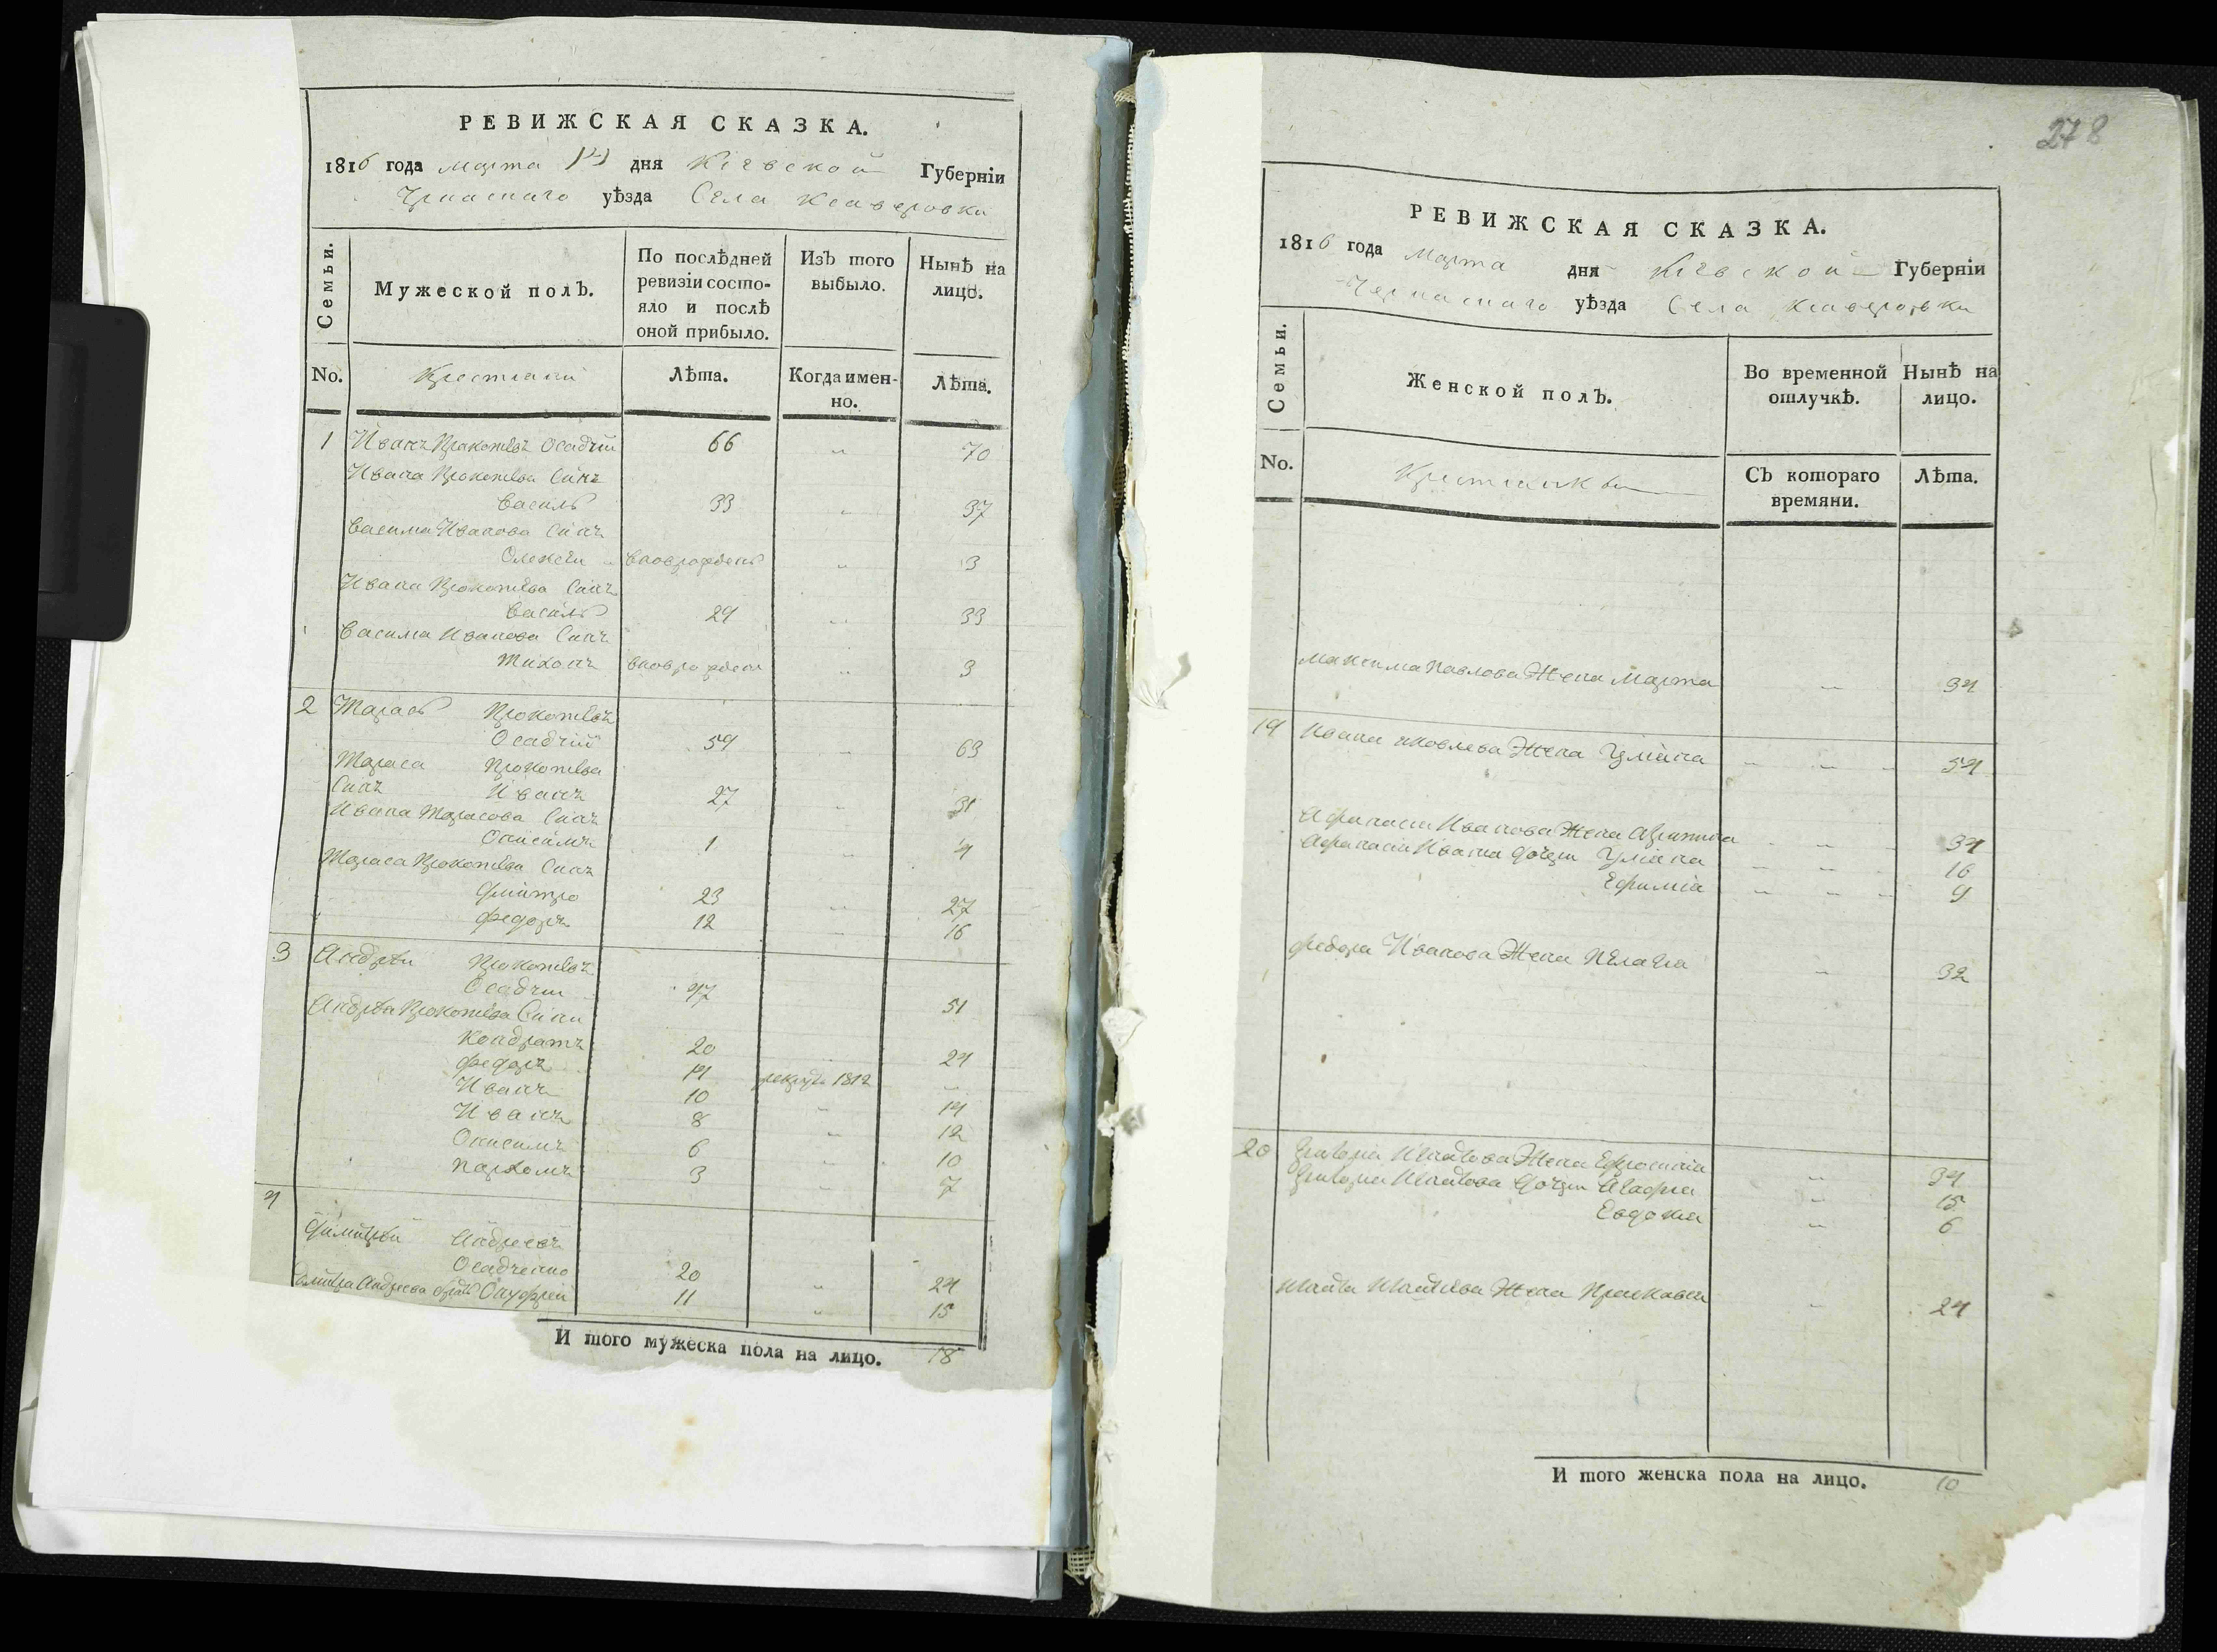 РЕВИЖСКАЯ СКАЗКА.
1816 года марта дня Кіевской Губерніи
уѣзда Села Ксаверовки
Семьи.
Мужеской полЪ.
По послѣдней ревизіи состояло и послѣ оной прибыло.
ИзЪ того выбыло.
Нынѣ на лицо.
No.
Крестіани
Лѣта.
Когда именно.
Лѣта.
1 Иванъ Прокопіевъ Осадчій 66 „ 70
Ивана Прокопіева Синъ
Василь 33 „ 37
Василия Иванова Синъ
Олексѣи вновьрожденъ „ 3
Ивана Прокопіева Синъ
Василь 29 „ 33
Василия Иванова Синъ
Тихонъ вновьрожденъ „ 3
2 Тарасъ Прокопіевъ
Осадчій 59 „ 63
Тараса Прокопіева
Синъ Иванъ 27 „ 31
Ивана Тарасова Синъ
Онисимъ 1 „ 4
Тараса Прокопіева Синъ
Дмитро 23 „ 27
Федоръ 12 „ 16
3 Андрѣи Прокопіевъ
Осадчій 47 51
Андрѣя Прокопіева Сини
Кондратъ 20 24
Федоръ 14 рекрутъ 1812 „
Иванъ 10 „ 14
Иванъ 8 „ 12
Онисимъ 6 „ 10
Пархомъ 3 „ 7
4
Димитрѣи Андреевъ
Осадченко 20 „ 24
Дмитра Андреева братъ Онуфрей 11 „ 15
И того мужеска пола на лицо. 18
278
РЕВИЖСКАЯ СКАЗКА.
1816 года Марта дня Кіевской Губерніи
Черкаскаго уѣзда Села Ксаверовки
Семьи.
Женской полЪ.
Во временной отлучкѣ.
Нынѣ на лицо.
No.
Крестіанки
СЪ котораго времяни.
Лѣта.
Максима Павлова Жена Марта „ 34
19 Ивана Яковлева Жена Уліана „ „ „ 54
Афанасія Иванова Жена „ „ 34
Афанасія Ивана дочери Уліана „ „ 16
Ефимія „ „ „ 9
Федора Иванова Жена Пелагія „ 32
20 Григорія Игнатова Жена Ефросинія „ 34
Григорія Игнатова дочери Агафія „ 15
Евдокія „ 6
Игнатіева Жена Прасковія „ 24
И того женска пола на лицо. 10